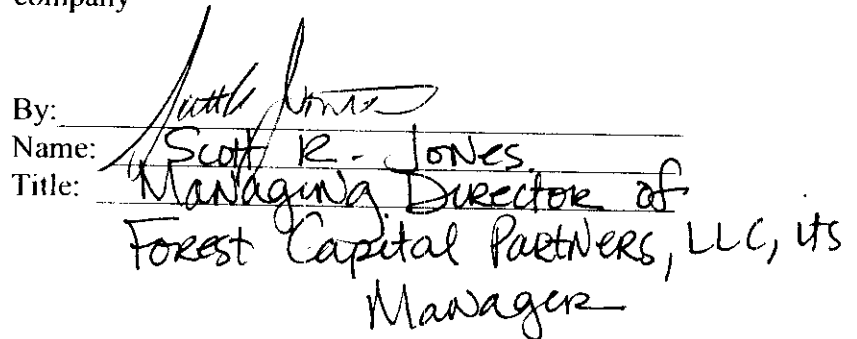 company
By: Scott Jones
Name: Scott R. Jones
Title: Managing Director of
Forest Capital Partners, LLC, its
Manager